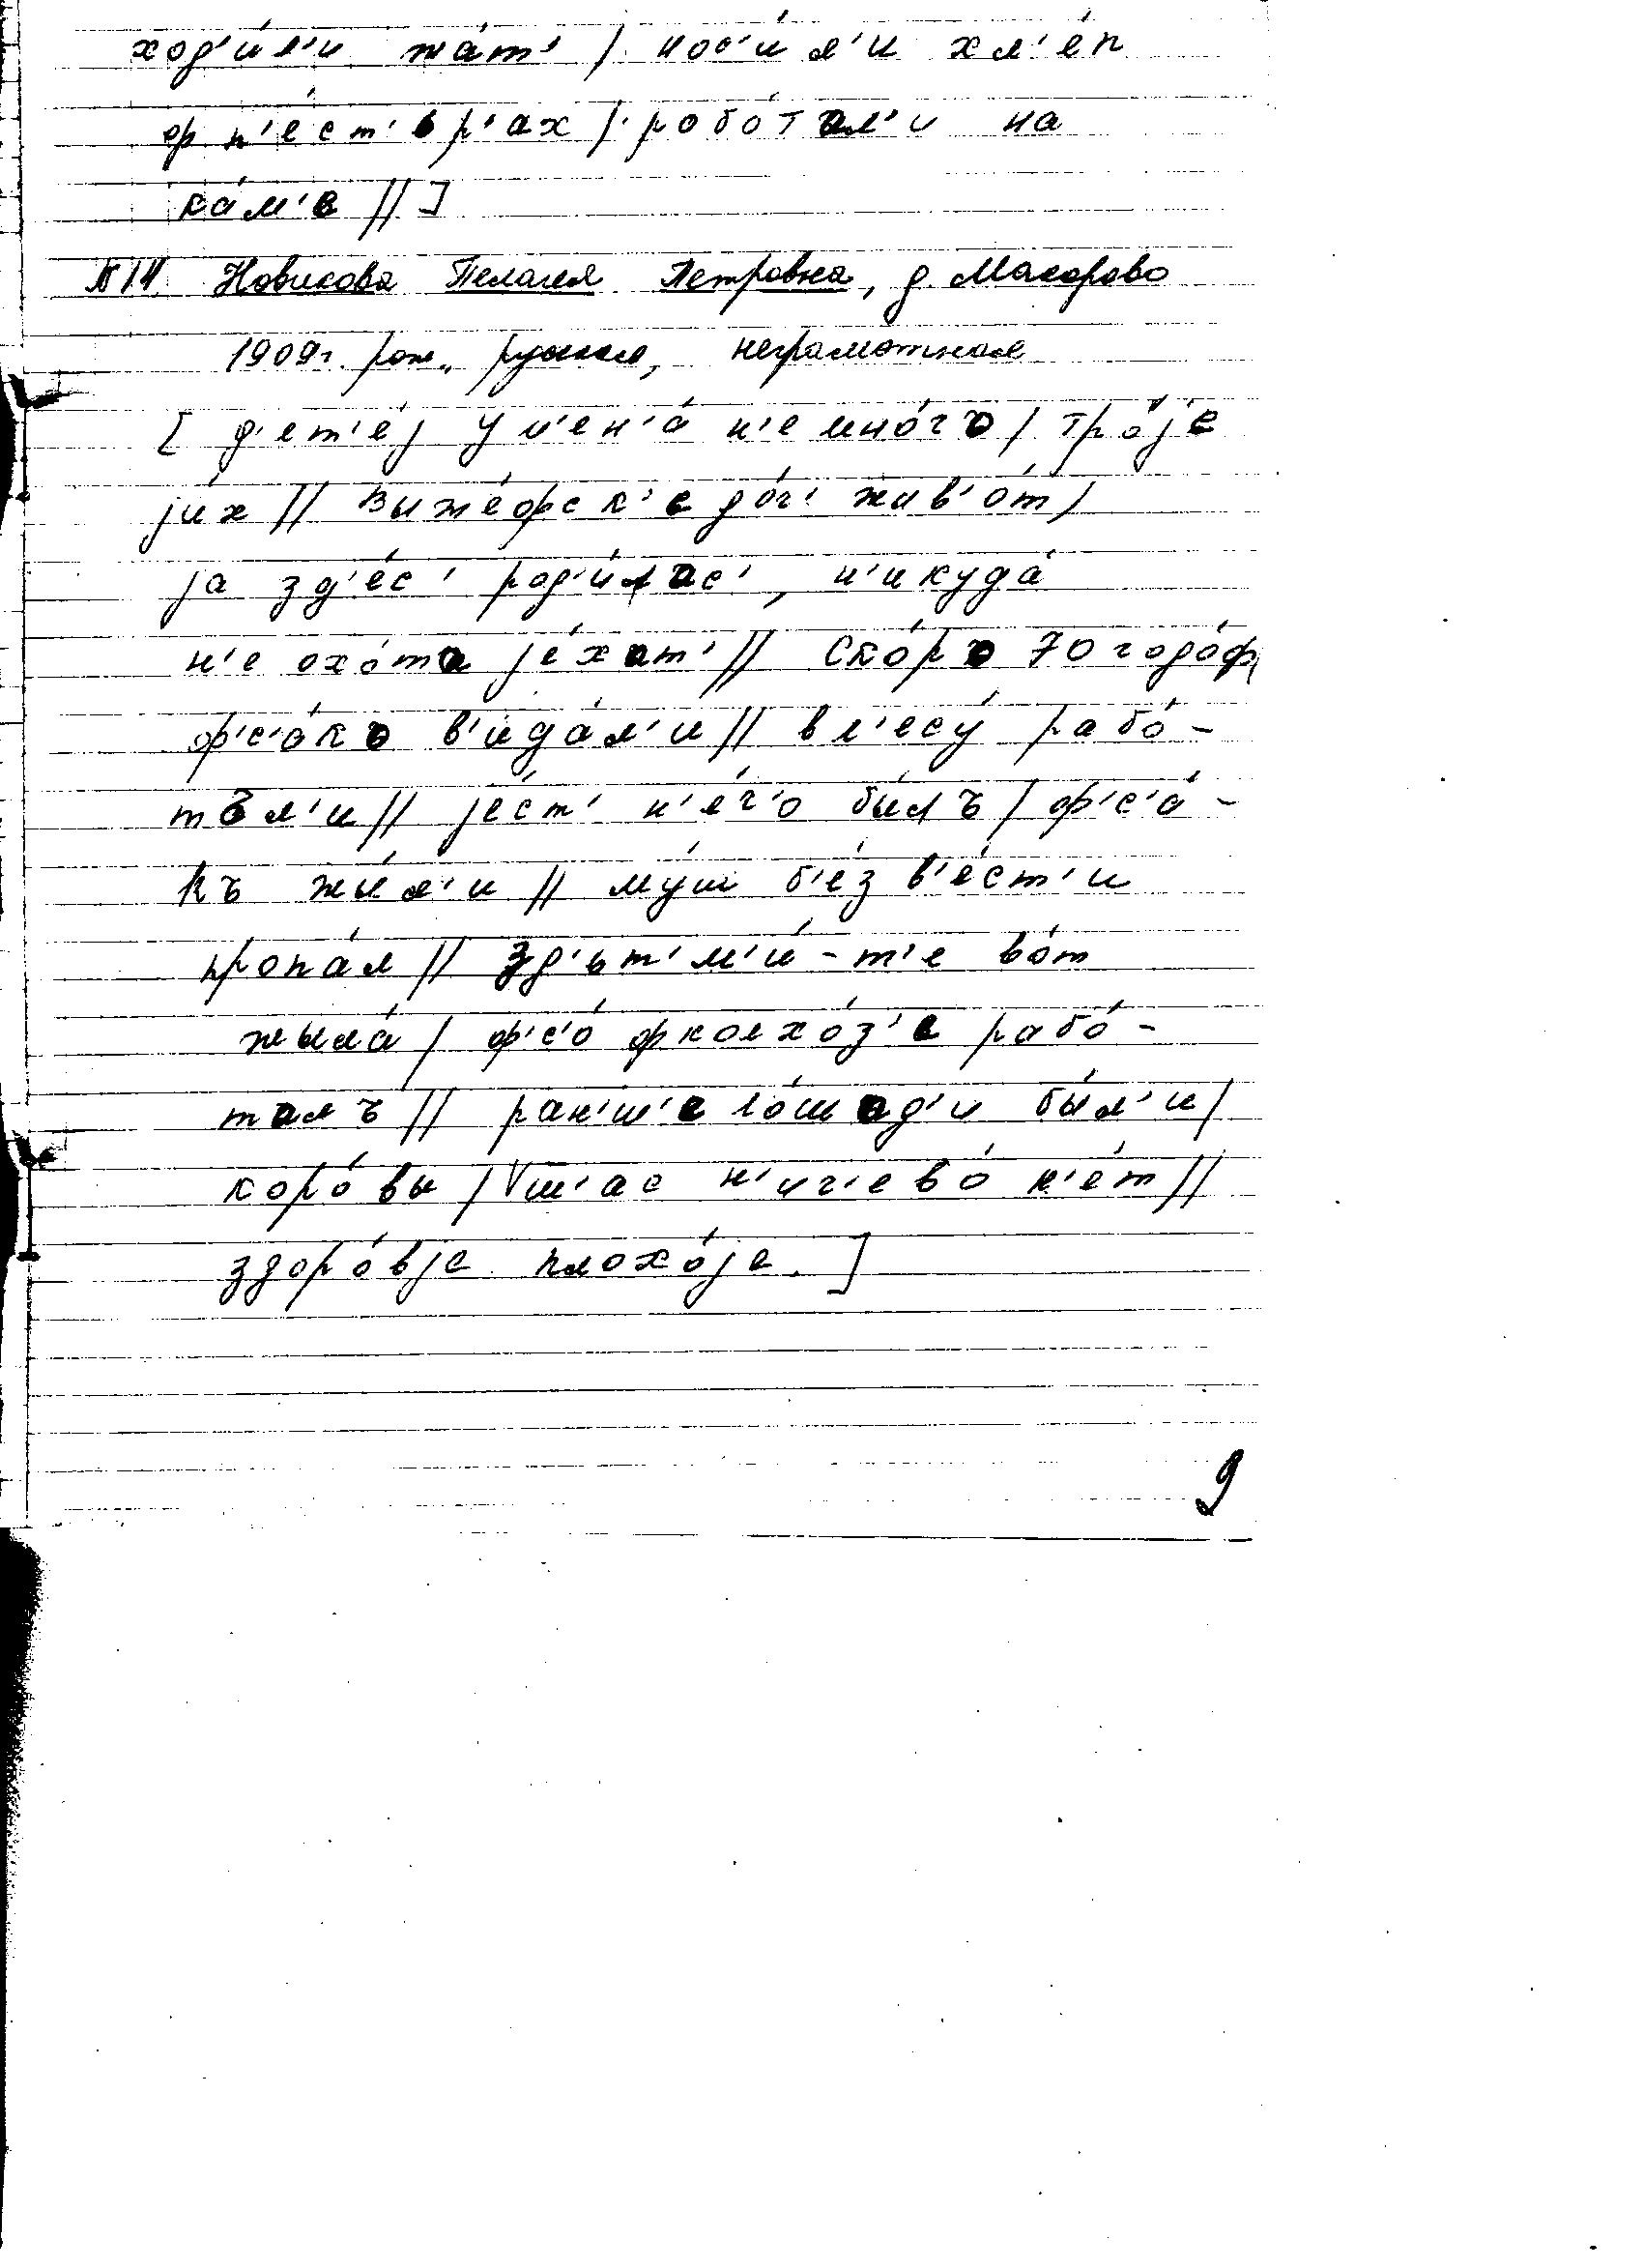 ход'и́л'и жа́т' / нос'и́л'и хл'е́п
ф п'ест'ьр'ах / робо́тал'и на
ка́м'е // ]
Новикова Пелагея Петровна, д. Макарово
1909г. рож., русская, неграмотная
[ д'ет'е́j у м'ен'а́ н'емно́гъ / тро́jе
jи́х // выже́фск'е до́ч' жив'о́т /
jа зд'е́с' род'и́лас', н'икуда́
н'е охо́та jе́хат' // ско́ръ 70 годо́ф
ф'с'а́ко в'ида́л'и // в л'есу́ рабо́ -
тъл'и // jе́ст' н'е́ч'о бы́лъ / ф'с'а́ -
къ жы́л'и // му́ш б'ез в'е́ст'и
пропа́л // з д'ьт'м'и́ - т'е во́т
жыла́ / ф'с'о́ ф колхо́з'е рабо́ -
талъ // ран'ш'е ло́шад'и бы́л'и /
коро́вы / ш'ас н'ич'ево́ н'е́т //
здоро́вjе плохо́jе. ]
9